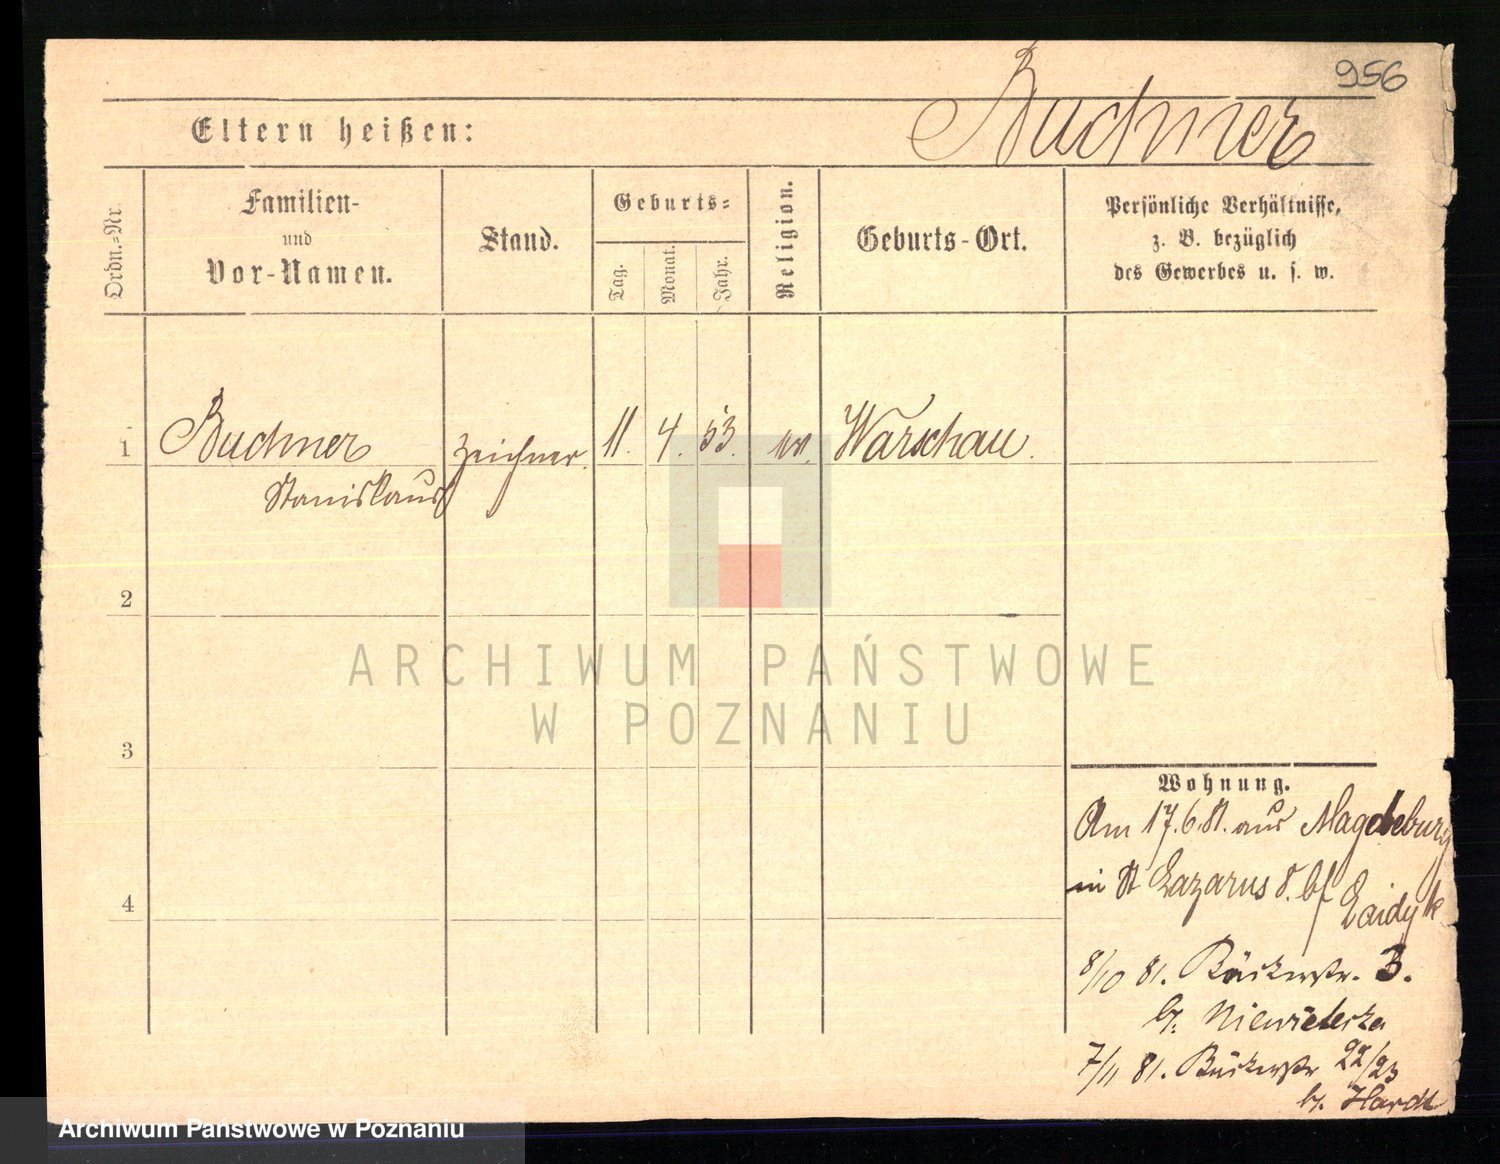 956
Buchner
Eltern heißen:
Ordn.-Nr.
Familien-
und
Vor-Namen.
Stand.
Geburts-
Tag.
Monat.
Jahr.
Religion.
Geburts-Ort.
Persönliche Verhältnisse,
z. B. bezüglich
des Gewerbes u. s. w.
1 Buchner Zeichner. 11. 4. 53. Warschau.
Stanislaus
2
3
4
ARCHIWUM PAŃSTWOWE
W POZNANIU
Wohnung.
Am 17.6.81. aus Magdeburg
in St Lazarus 8. bf
8/10 81. Bäckerstr. 3.
b.
7/11 81. Bäckerstr 22/23
b. Hardt
Archiwum Państwowe w Poznaniu